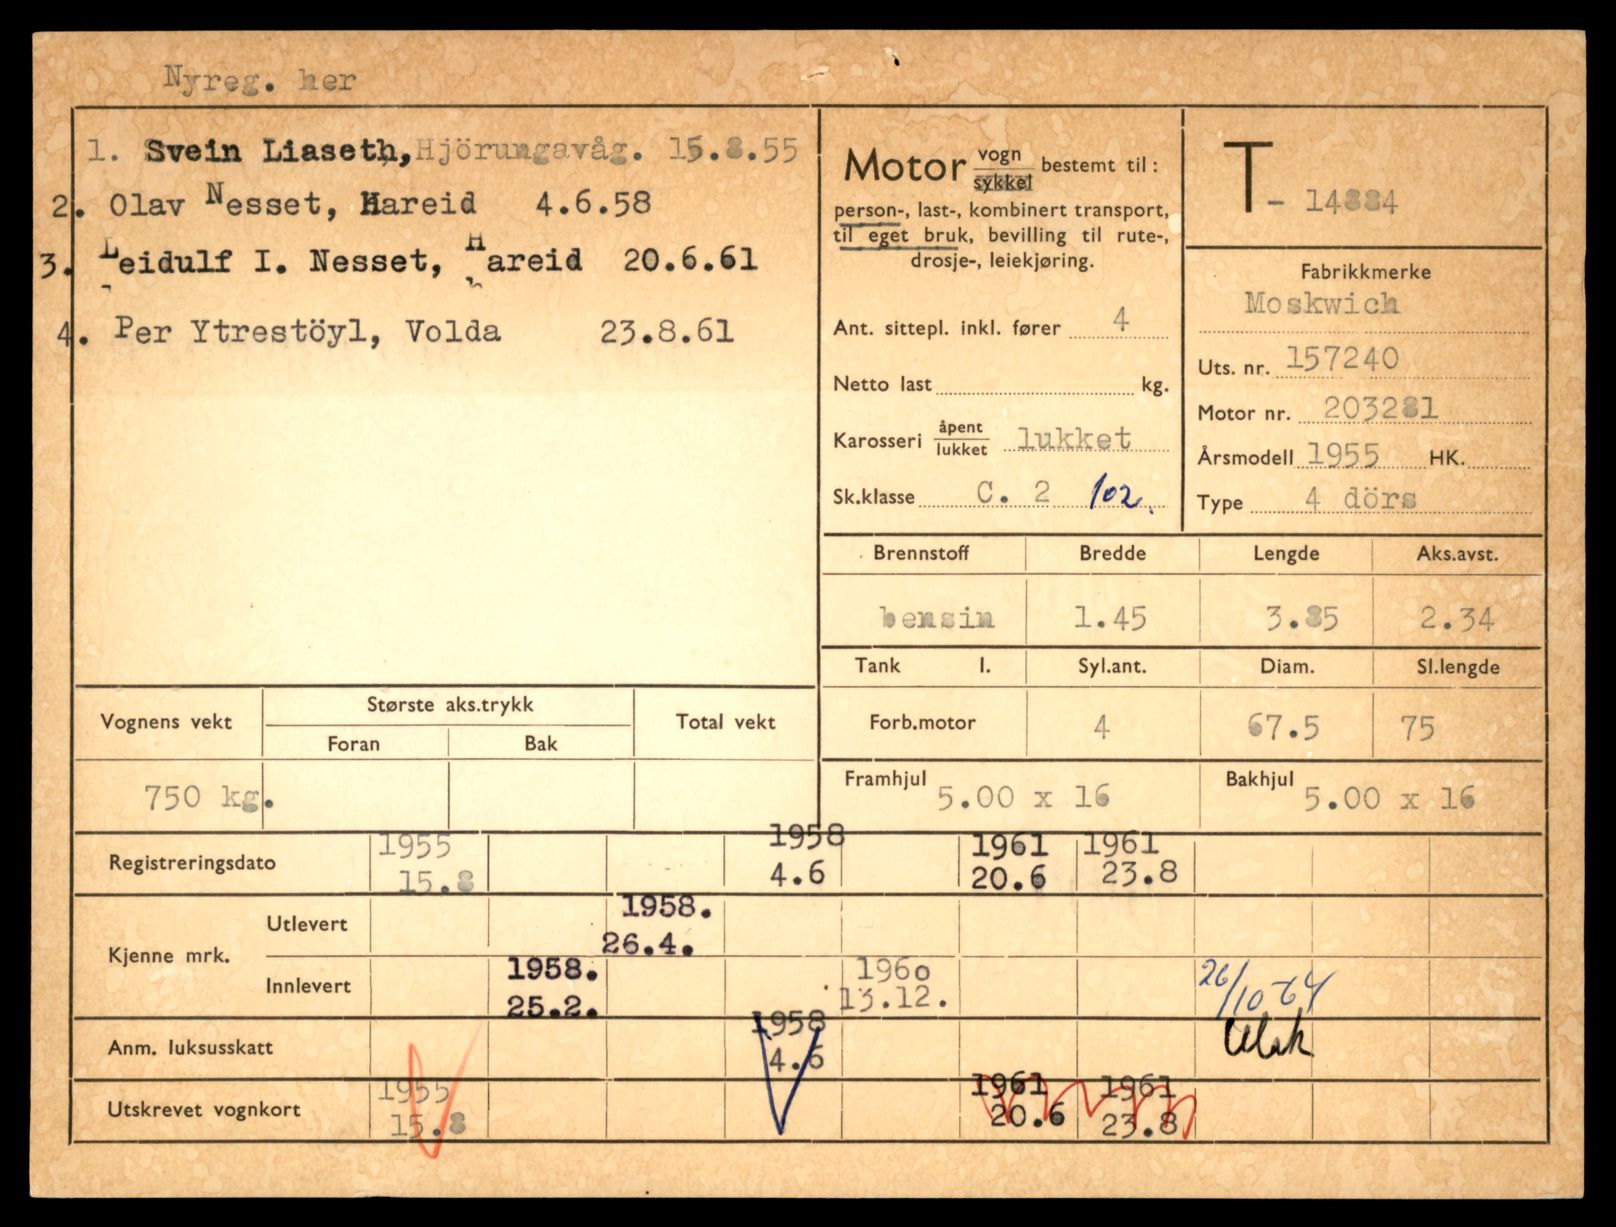 Nyreg. her
1. Svein Liaseth, Hjörungavåg. 15.8.55
2. Olav Nesset, Hareid 4.6.58
3. Leidulf I. Nesset, Hareid 20.6.61
4. Per Ytrestöyl, Volda 23.8.61
Motor vogn/sykkel bestemt til:
person-, last-, kombinert transport,
til eget bruk, bevilling til rute-,
drosje-, leiekjøring.
Ant. sittepl. inkl. fører 4
Netto last kg.
Karosseri åpent/lukket lukket
Sk.klasse C. 2 102.
T- 14884
Fabrikkmerke
Moskwich
Uts. nr. 157240
Motor nr. 203281
Årsmodell 1955 HK.
Type 4 dörs
Brennstoff Bredde Lengde Aks.avst.
bensin 1.45 3.85 2.34
Tank l. Syl.ant. Diam. Sl.lengde
Forb.motor 4 67.5 75
Framhjul 5.00 x 16 Bakhjul 5.00 x 16
Vognens vekt Største aks.trykk Total vekt
Foran Bak
750 kg.
Registreringsdato 1955 1958 1961 1961
15.8 4.6 20.6 23.8
Kjenne mrk. Utlevert 1958.
26.4.
Innlevert 1958. 1960 26/10-64
25.2. 13.12.
Anm. luksusskatt 1958
4.6
Utskrevet vognkort 1955 1961 1961
15.8 20.6 23.8